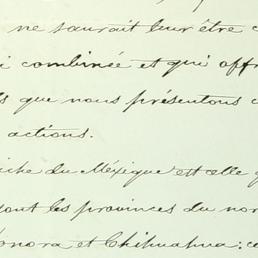 ne saurait leur être c
i combinée et qui offr
ls que nous présentons c
actions.
iche du Méxique est celle q
ont les provinces du nor
onora et Chihuahua: ce